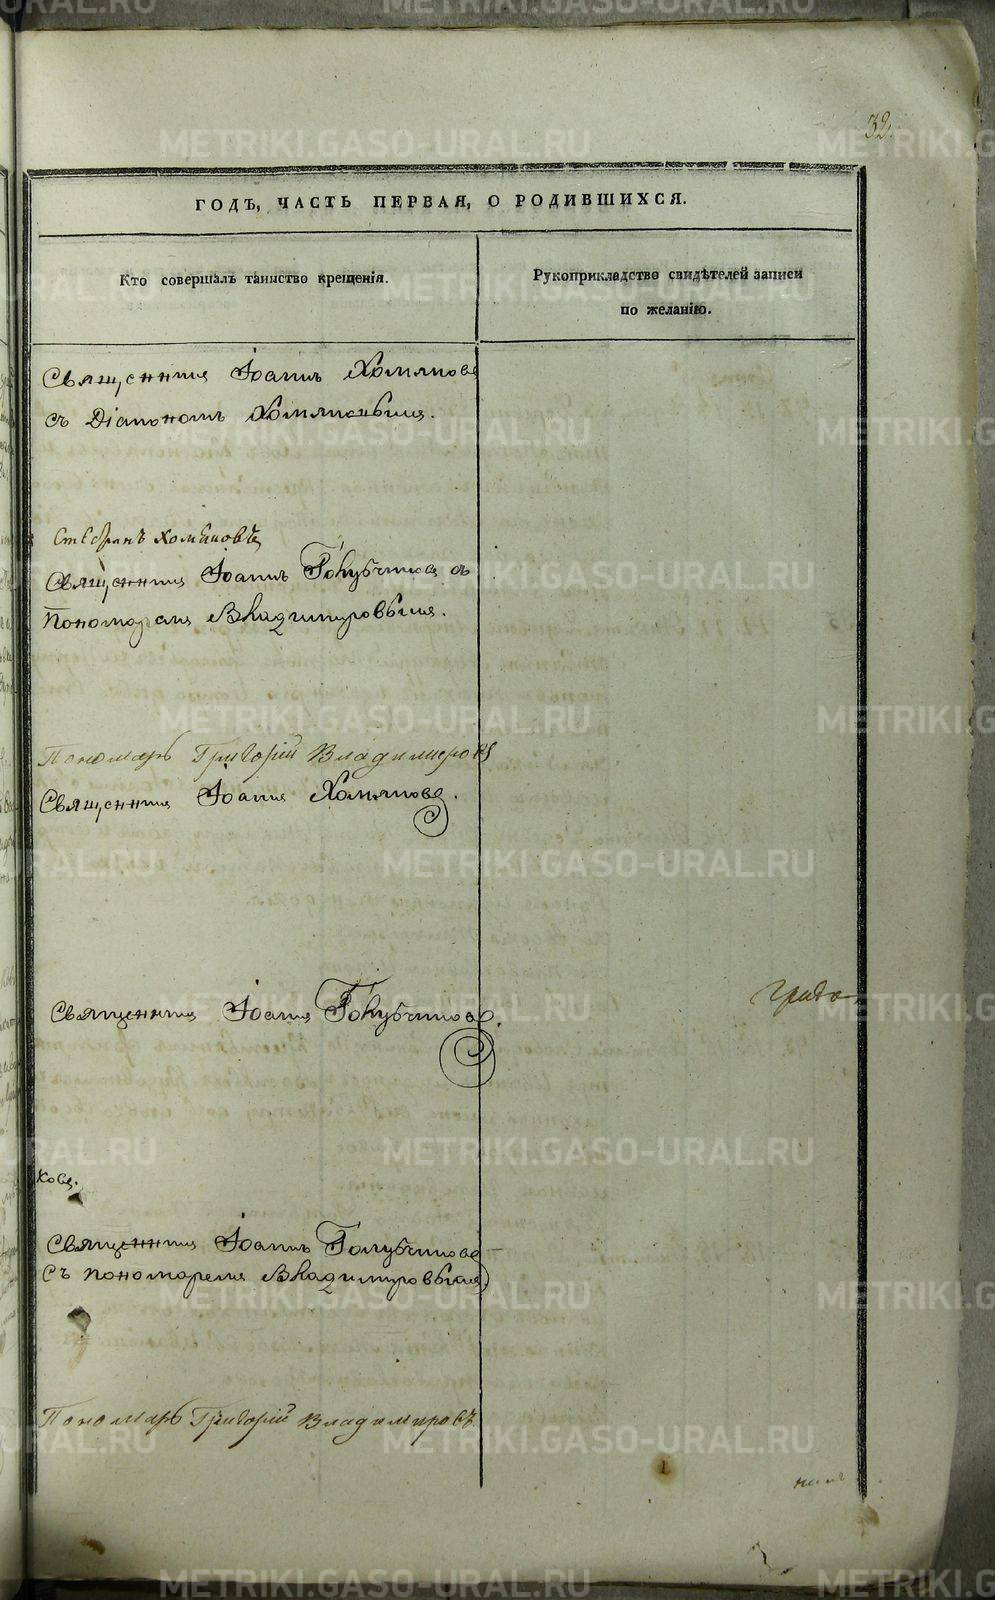 32.
ГОДЪ, ЧАСТЬ ПЕРВАЯ, О РОДИВШИХСЯ.
Кто совершалъ таинство крещенія.
Рукоприкладство свидѣтелей записи
по желанію.
Священникъ Іоаннъ Хомяковъ
съ Діакономъ Хомяковымъ.
Стефанъ Хомяковъ
Священникъ Іоаннъ Голубчиковъ съ
Пономаремъ Владимировымъ.
Пономарь Григорій Владимировъ
Священникъ Іоаннъ Хомяковъ.
Священникъ Іоаннъ Голубчиковъ.
ковъ.
Священникъ Іоаннъ Голубчиковъ
съ пономаремъ Владимировымъ
Пономарь Григорій Владимировъ
METRIKI.GASO-URAL.RU